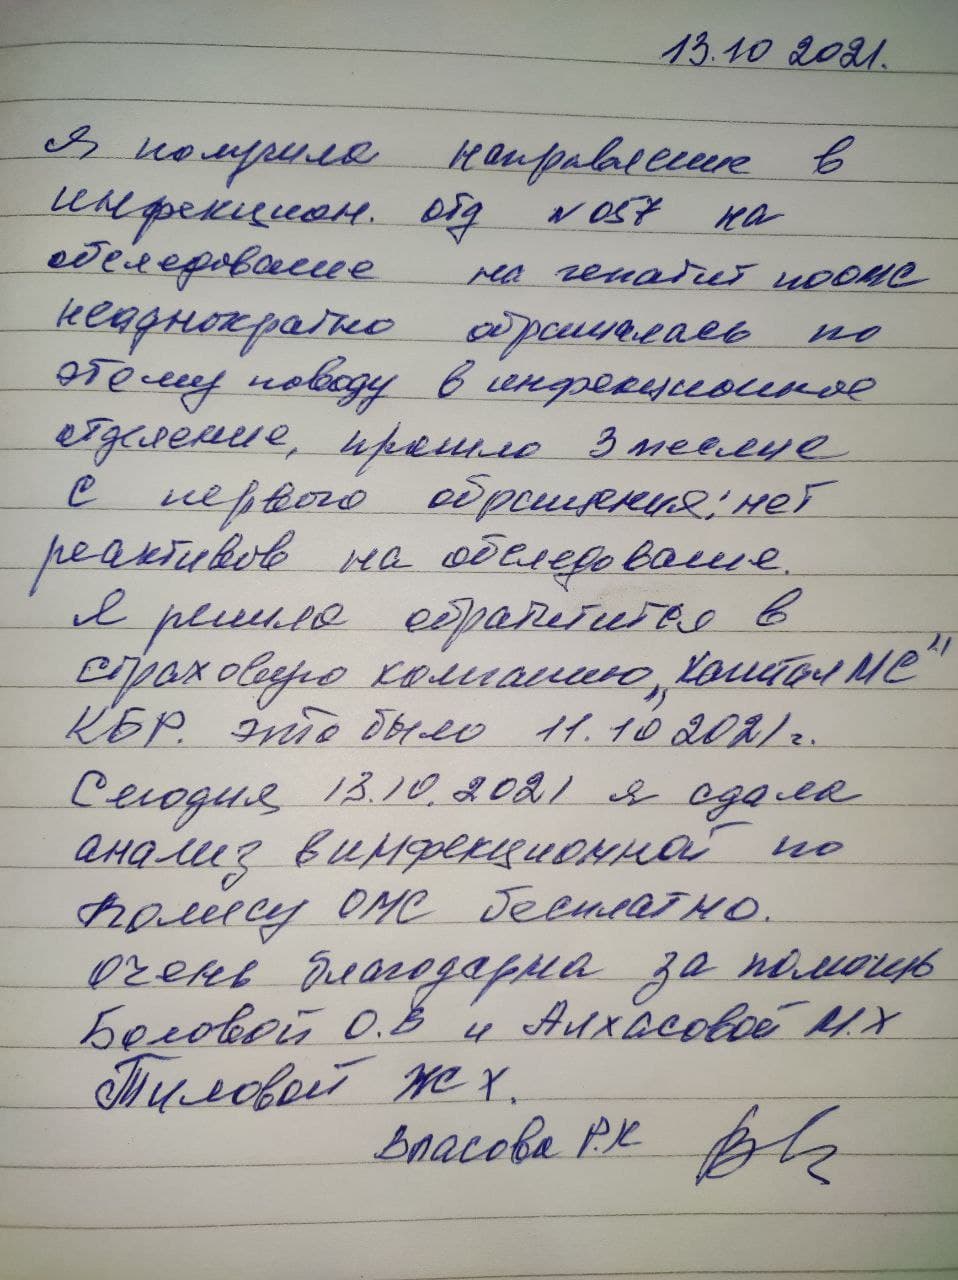 13.10 2021.
Я получила направление в
инфекцион. отд №057 на
обследование на гепатит по ОМС
неоднократно обращалась по
этому поводу в инфекционное
отделение, прошло 3 месяца
с первого обращения: нет
реактивов на обследование.
Я решила обратитится в
страховую компанию „Капитал МС"
КБР. это было 11.10 2021 г.
Сегодня 13.10.2021 я сдала
анализ в инфекционной по
полису ОМС бесплатно.
очень благодарна за помощь
Баловой О.В и Алхасовой М.Х
Тиловой Ж Х.
Власова Р.К